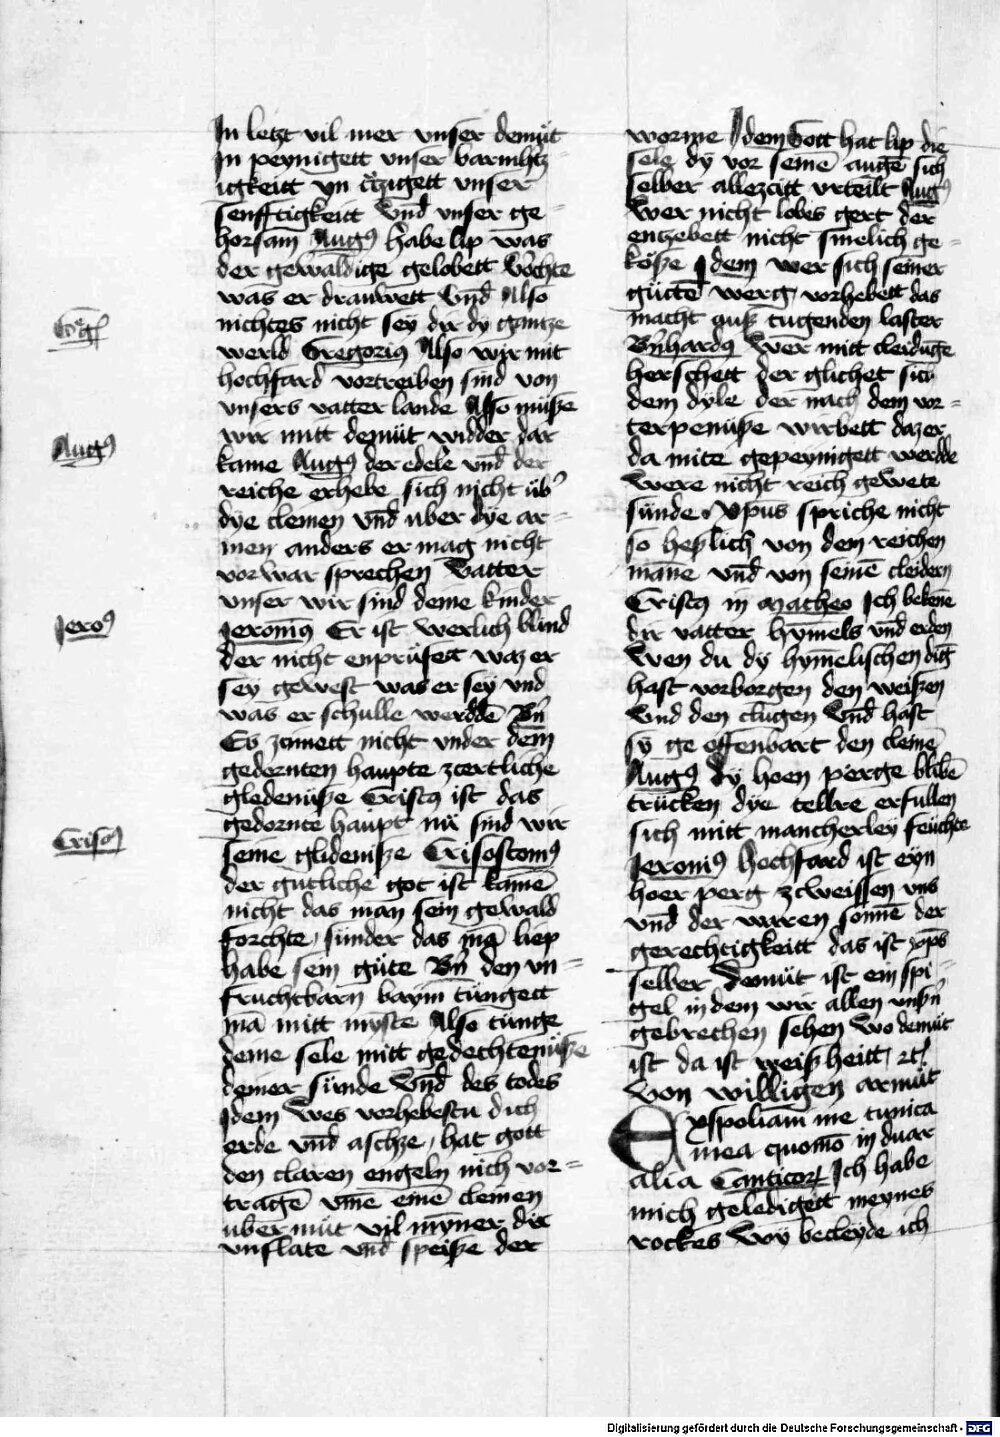 In letzt vil mer unser demüt
In peynigett unser barmhtz
igkeitt vn
unser
senfftigkeitt Vnd unser ge-
horsam Augꝰ habe lip was
der gewaldige gelobett Vochte
was er drauwett Vnd Also
nichtes nicht sey dir dy gantze
werld Gregoriꝰ Also wir mit
hochfard vortreiben sind von
unsers vatter lande Also müsze
wir mitt demüt widder dar
kame Augꝰ der edele vnd der
reiche erhebe sich nicht übʼ
dye clemen vnd uber dye ar-
men anders er mag nicht
vorwar sprechen Vatter
unser wir sind deine kinder
Jeronimꝰ Er ist werlich blind
der nicht enprüfett waz er
sey gewest was er sey vnd
was er schulle werddē Bn̄
Es zcimett nicht under dem
gedornten haupte zcertliche
gledenüsze Cristꝰ ist das
gedornte haupt nü sind wir
seine glidenisze Crisostomꝰ
der gutliche got ist kamē
nicht das man sein gewald
forchte, sünder das mā liep
habe sein güte Bn̄ den vn=
fruchtbarn baym tüngett
mā mitt myste Also tünge
deine sele mitt gedechtenüsze
deiner sünde Vnd des todes
Idem Wes vorhebestu dich
erde vnd aschze, hat gott
den claren engeln nich vor=
tragē vmē einē cleinen
ubermüt vil myner dir
vnflate vnd speisze der
Gregꝰ
Augꝰ
Jeroꝰ
Crisoꝰ
worme Idem Gott hat lip die
sele dy vor seinē augē sich
selber allezcitt urteilt Augꝰ
Wer nicht lobes gert der
entzebett nicht smelich ge=
kösze Idem wer sich seiner
güttē werg vorhebett das
macht ausz tugenden laster
Bn̄hardꝰ Wer mitt cleidunge
herschett der glichet sich
dem dyle der nach dem vor=
terpenüsze wirbett daz er
da mite gepeynigett werdde
Were nicht reich gewete
sünde xpūs spriche nicht
so heszlich von dem reichen
māne vnd von seinē cleidern
Cristꝰ in Matheo Ich bekēne
dir vatter hymels vnd erden
Wen du dy hymelischen dig
hast vorborgen den weiszen
Vnd den clugen Vnd hast
sy ge offenbart den cleinē
Augꝰ dy hoen perge blibē
trücken dye telre erfullen
sich mitt mancherley feüchte
Jeronīꝰ hochfard ist eyn
hoer perg zcweissen vns
vnd der waren sonnē der
gerechtigkeitt das ist xpūs
selber demüt ist ein spi
gel in dem wir allen vnsn̄
gebrechen sehen Wo demüt
ist da ist weiszheitt, ꝛc
Von willigen armüt
Exspoliam me tunica
mea quomō induar
alia Canticoꝝ Ich habe
mich geledigett meynes
rockes Wy becleyde ich
Digitalisierung gefördert durch die Deutsche Forschungsgemeinschaft - DFG